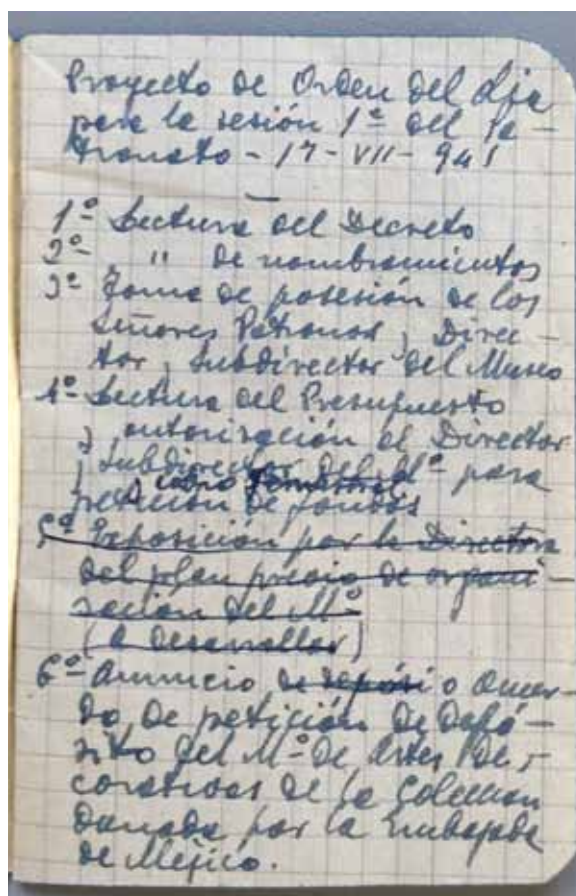 Proyecto de Orden del día
para la sesión 1ª del Pa-
tronato - 17 - VII - 941
1º Lectura del Decreto
2º " de nombramientos
3º Toma de posesión de los
Señores Patronos, Direc-
tor, Subdirector del Museo
4º Lectura del Presupuesto
y autorización al Director
y Subdirector del Mº para
y cobro
petición de fondos
5º Exposición por la Directora
del plan previo de organi-
zación del Mº
(a desarrollar)
6º Anuncio de o acuer-
do de petición de depó-
sito del Mº de Artes De-
corativas de la Colección
donada por la Embajada
de Méjico.